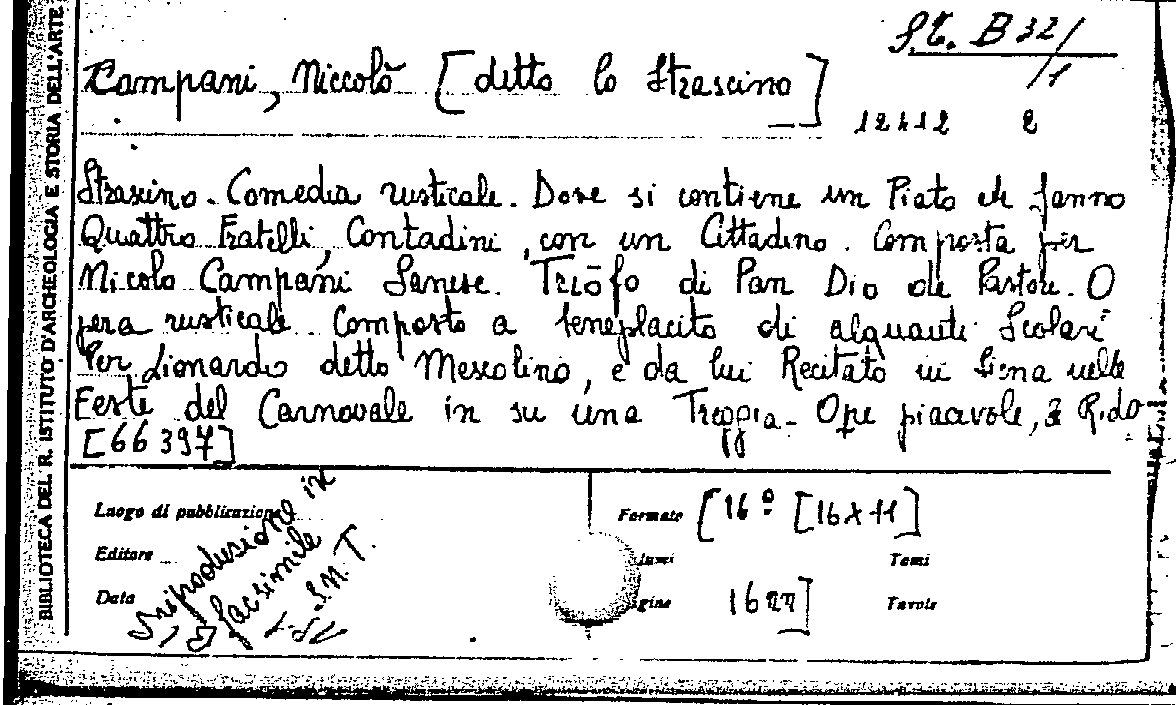 S.T. B 32/1
Campani, Niccolò [detto lo Strascino]
12412 2
Strascino. Comedia rusticale. Dove si contiene un Piato che fanno
Quattro Fratelli, Contadini, con un Cittadino. Composta per
Nicolo Campani Sanese. Triõfo di Pan Dio de Pastori. O
pera rusticale. Composto a beneplacito di alquanti Scolari
Per Lionardo detto Mescolino, e da lui Recitato in Siena nelle
Feste del Carnovale in su una Treggia. Ope piacevole, & Rido-
[66397]
BIBLIOTECA DEL R. ISTITUTO D'ARCHEOLOGIA E STORIA DELL'ARTE
Luogo di pubblicazione
Formato [16º [16x11]
Editore
Tomi
Data
Tavole
riproduzione in
facsimile
S.n.T.